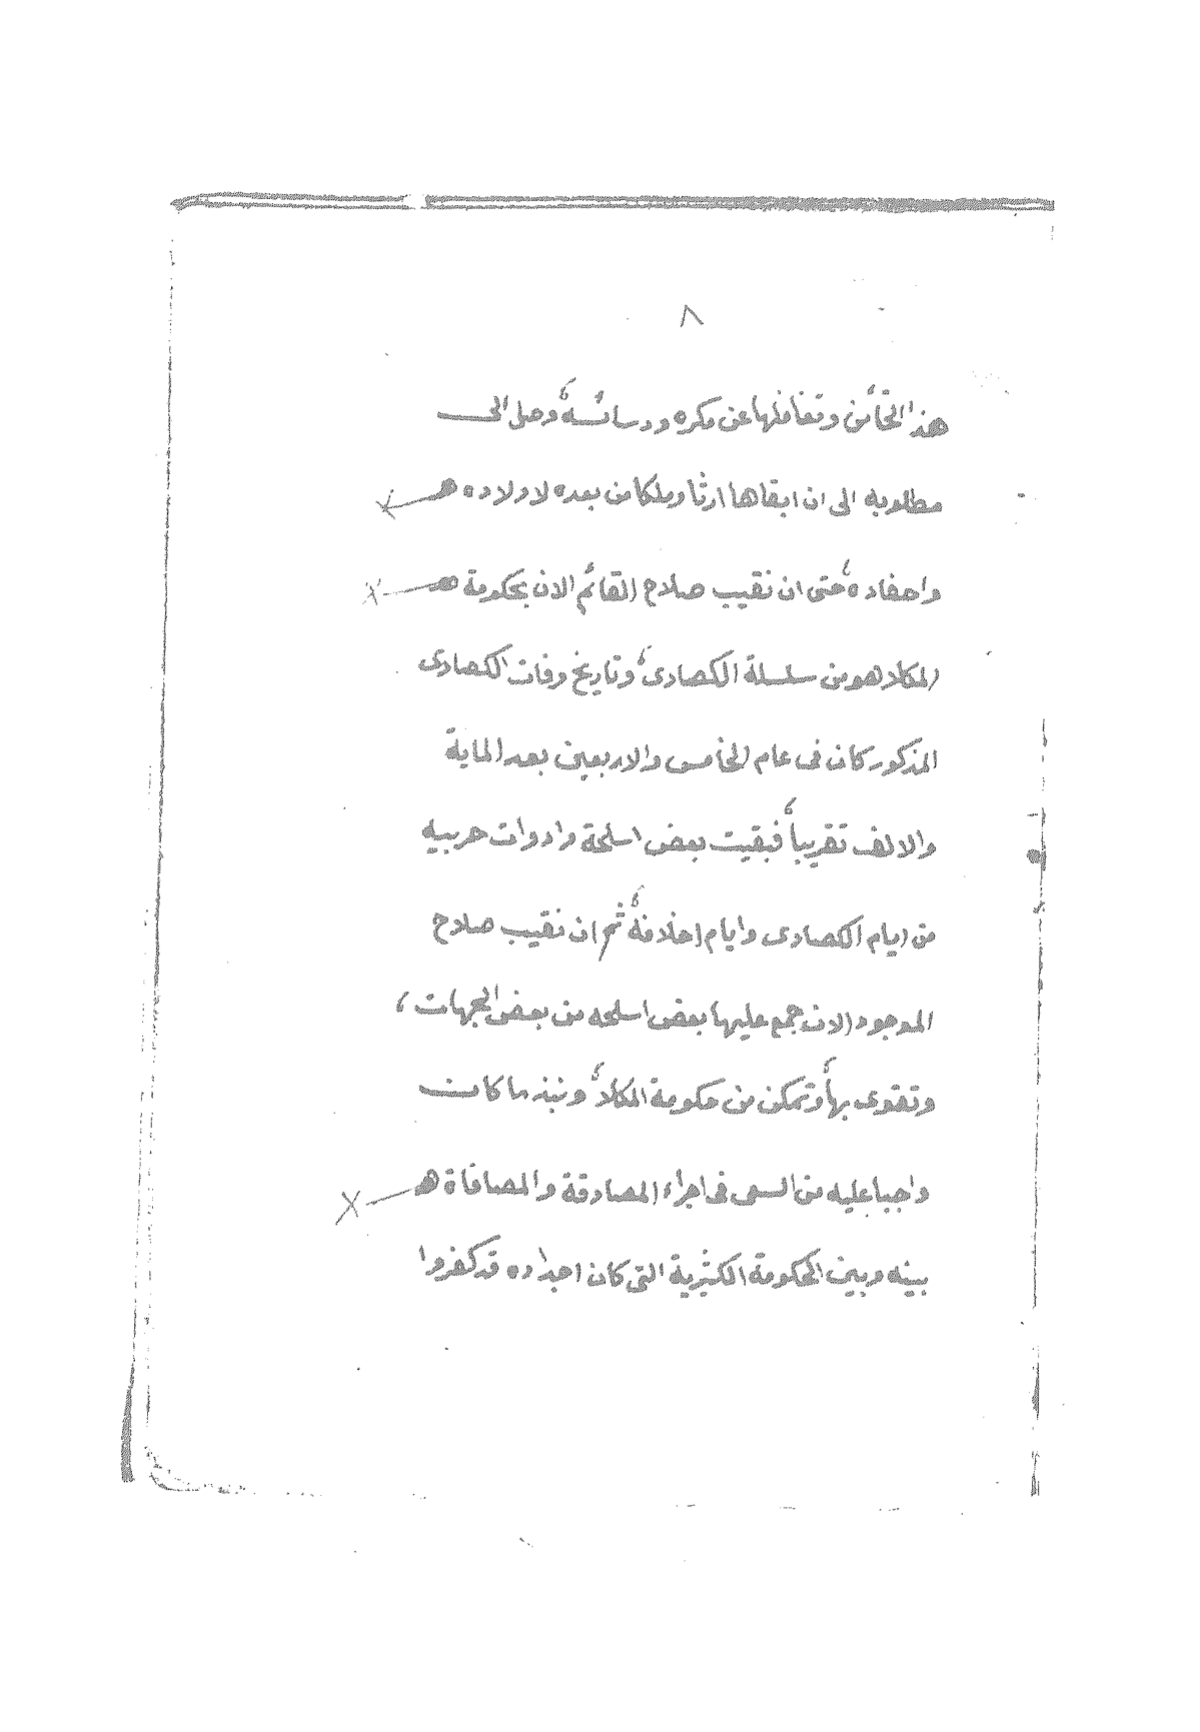 ٨
هذا الخائن وتغافلها عن مكره ودسائسه، وصل الى
مطلوبه الى ان ابقاها ارثا وملكا من بعده لاولاده هـ
واحفاده، حتى ان نقيب صلاح القائم الان بحكومة هـ
المكلا هو من سلسلة الكصادى، وتاريخ وفات الكصادى
المذكور كان فى عام الخامس والاربعين بعد الماية
والالف تقريباً، فبقيت بعض اسلحة وادوات حربيه
من ايام الكصادى وايام اخلافه، ثم ان نقيب صلاح
الموجود الان جمع عليها بعض اسلحه من بعض الجهات،
وتقوى بها، وتمكن من حكومة المكلا، ونبذ ما كانت
واجبا عليه من السعى فى اجراء المصادقة والمصافاة هـ
بينه وبين الحكومة الكثيرية التى كان اجداده قد كفروا